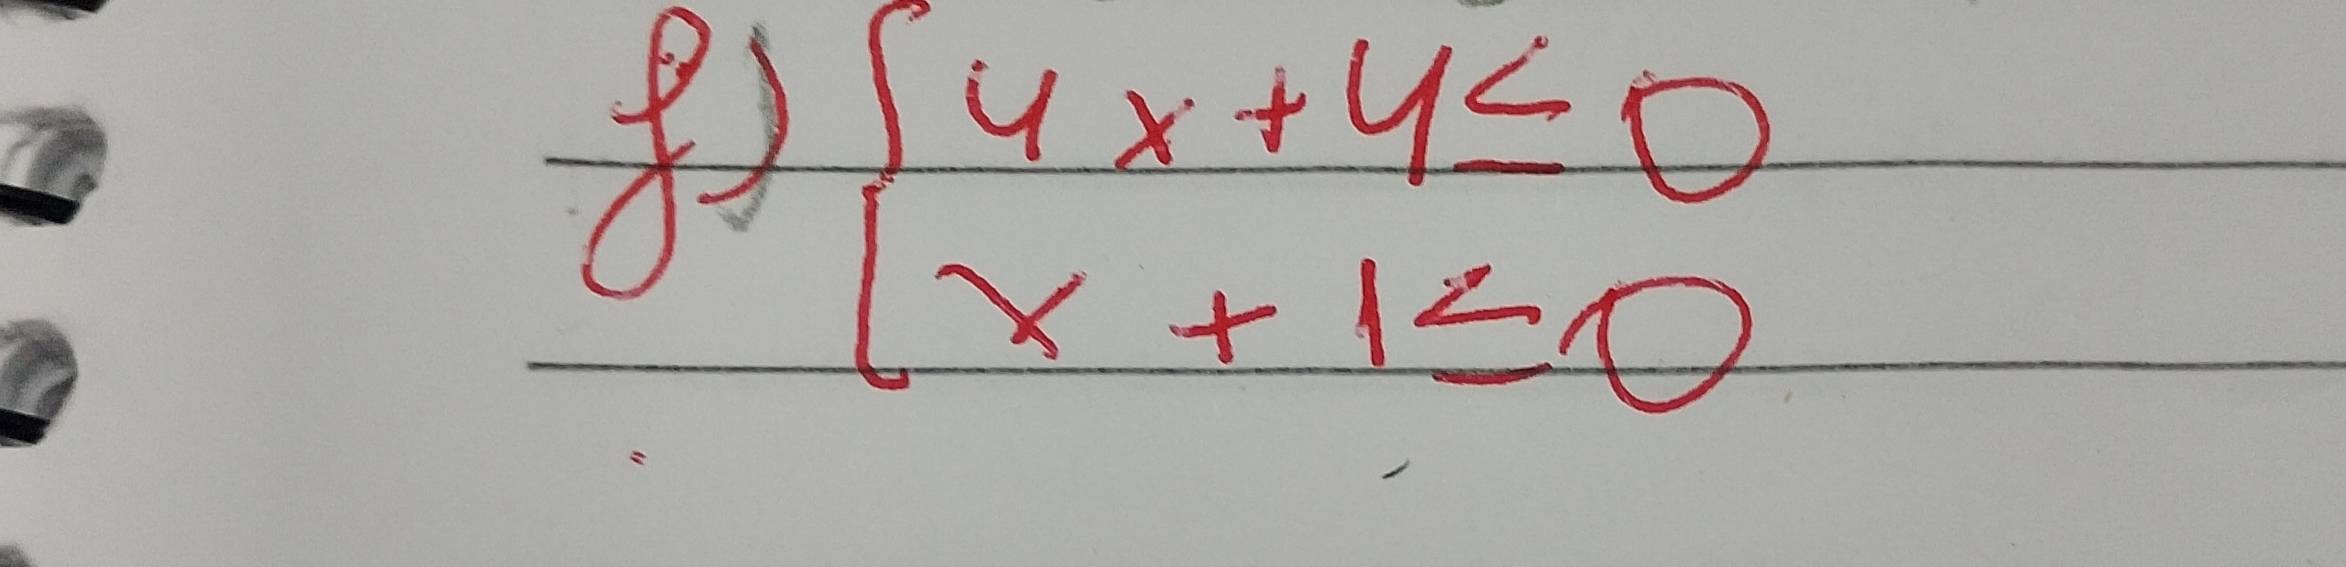 f) { 4x + 4 ≤ 0
x + 1 ≤ 0